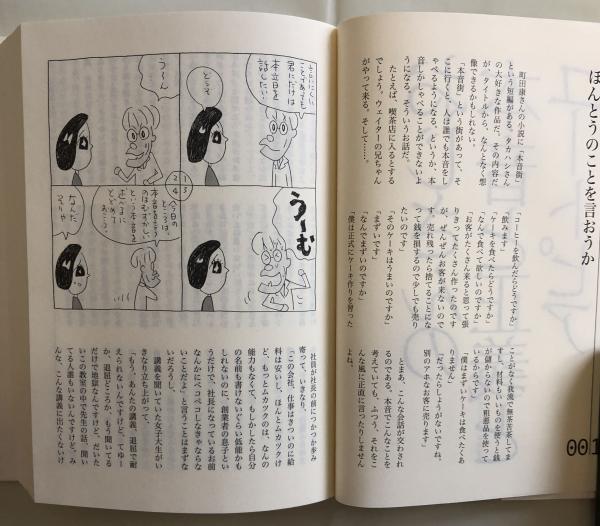 ほんとうのことを言おうか
町田康さんの小説に「本音街」
という短編がある。タカハシさん
の大好きな作品だ。その内容だ
が、タイトルから、なんとなく想
像できるかもしれない。
「本音街」という街があって、そ
こに行くと、人は誰でも本音をし
ゃべるようになる、というか、本
音しかしゃべることができないよ
うになる。そういうお話だ。
たとえば、喫茶店に入るとする
でしょう。ウェイターの兄ちゃん
がやって来る。そして……。
「コーヒーを飲んだらどうですか」
「飲みます」
「ケーキを食べたらどうですか」
「なんで食べて欲しいのですか」
「お客がたくさん来ると思って張
りきってたくさん作ったのです
が、ぜんぜんお客が来ないので
す。売れ残ったら捨てることにな
って銭を損するので少しでも売り
たいのです」
「そのケーキはうまいのですか」
「まずいです」
「なんでまずいのですか」
「僕は正式にケーキ作りを習った
ことがなく我流で無茶苦茶してま
すし、材料もいいものを使うと銭
が儲からないので粗悪品を使って
いるからです」
「僕はまずいケーキは食べたくあ
りません」
「だったらしょうがないですね。
別のアホなお客に売ります」
とまあ、こんな会話が交わされ
るのである。本音でこんなことを
考えていても、ふつう、それをこ
んな風に正直に言ったりしません
よね。
001
言いにくい
ことであっても
君にだけは
本音を
話したい
どうぞ
うーん
うーむ
今日の
ところは、
本音を語る
のはむずかしい
という本音を
述べるに
とどめて
おこう。
なんだ
そりゃ
社員が社長の前につかつか歩み
寄って、いきなり、
「この会社、仕事はきついのに給
料は安いし、ほんとムカツクけ
ど、もっとムカツクのは、なんの
能力もなくて、もしかしたら自分
の名前も書けないぐらい低能かも
しれないのに、創業者の息子とい
うだけで、社長になっているお前
なんかにペコペコしなきゃならな
いことだよ」と言うことはまずな
いだろうし、
講義を聞いていた女子大生がい
きなり立ち上がって、
「もう、あんたの講義、退屈で耐
えられないんですけど。てゆー
か、退屈どころか、もう聞いてる
だけで地獄なんですけど。だいた
いこの教室の中で先生の話、聞い
てる人誰もいないんですけど。み
んな、こんな講義に出たくないけ